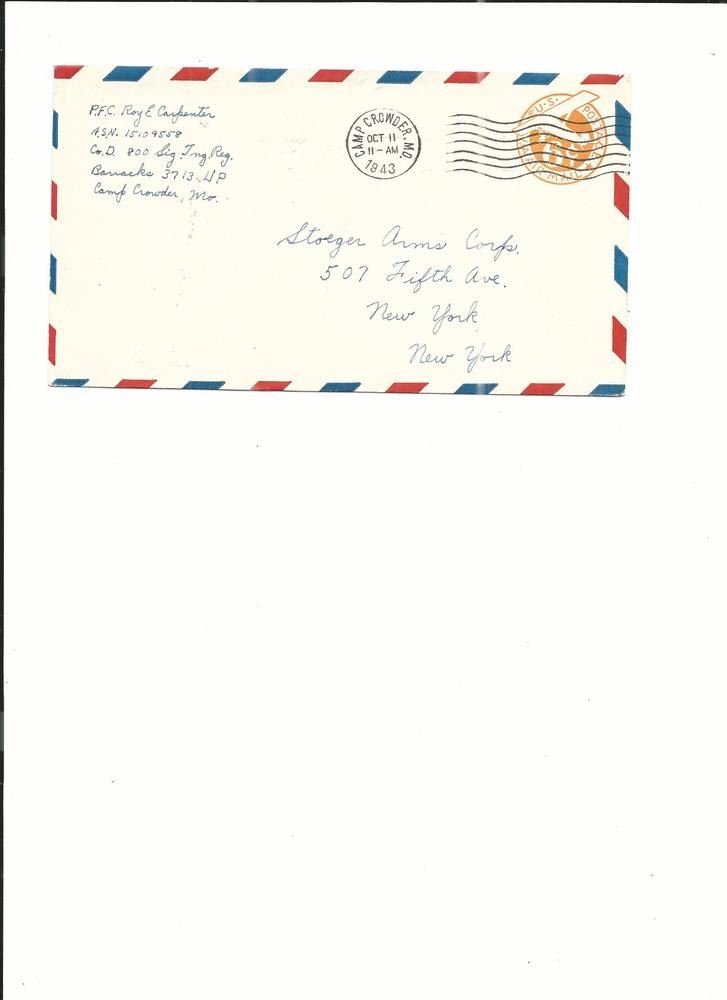 P.F.C. Roy E Carpenter
A.S.N. 15109558
Co. D. 800 Sig. Tng. Reg.
Barracks 3713-UP
Camp Crowder, Mo.
CAMP CROWDER, MO.
OCT 11
11-AM
1943
U.S. POSTAGE
AIR MAIL
Stoeger Arms Corp.
507 Fifth Ave.
New York
New York